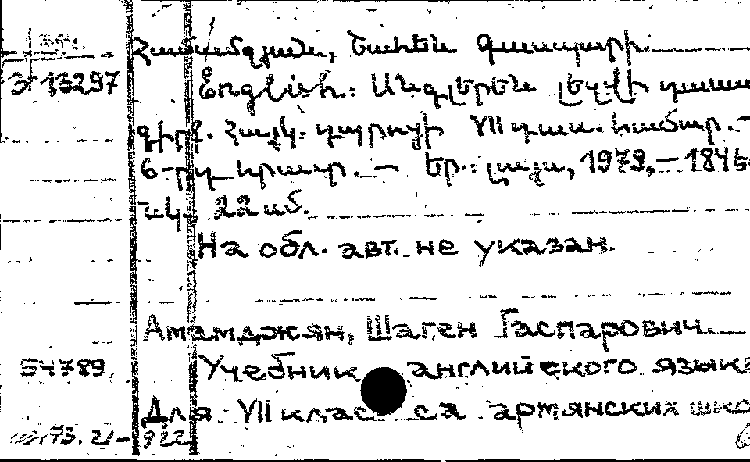 Համամջյան, Շահեն Գասպարի.
Э 13297 English: Անգլերեն լեզվի դաս
գիրք. Հայկ. դպրոցի VII դաս. համար. –
6-րդ հրատ. – Եր.: Լույս, 1979, – 184
նկ. 22 սմ.
На обл. авт. не указан.
Амамджян, Шаген Гаспарович.
54789. Учебник английского языка
Для VII класса армянских шко
922